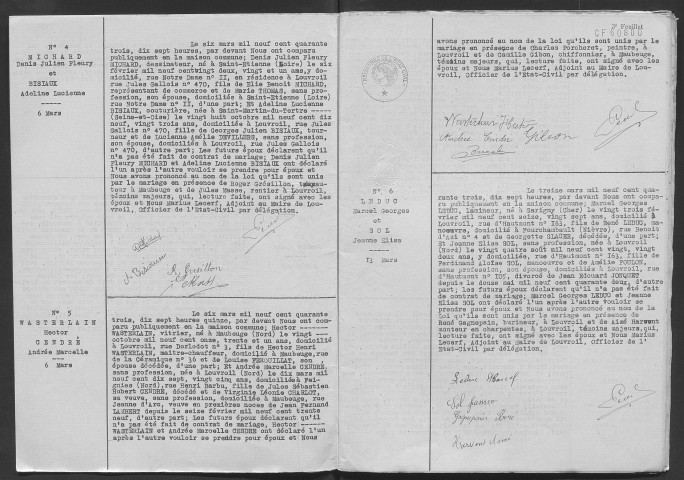 N° 4
MICHARD
Denis Julien Fleury
et
BISIAUX
Adeline Lucienne
-----
6 Mars
Le six mars mil neuf cent quarante
trois, dix sept heures, par devant Nous ont comparu
publiquement en la maison commune; Denis Julien Fleury
MICHARD, dessinateur, né à Saint-Etienne (Loire) le six
février mil neuf centvingt deux, vingt et un ans, y do-
micilié, rue Notre Dame n° II, en résidence à Louvroil
rue Jules Gallois n° 470, fils de Elie Benoit MICHARD,
représentant de commerce et de Marie THOMAS, sans pro-
fession, son épouse, domiciliés à Saint-Etienne (Loire)
rue Notre Dame n° II, d'une part; Et Adeline Lucienne
BISIAUX, couturière, née à Saint-Martin-du-Tertre
(Seine-et-Oise) le vingt huit octobre mil neuf cent dix
neuf, vingt trois ans, domiciliée à Louvroil, rue Jules
Gallois n° 470, fille de Georges Julien BISIAUX, tour-
neur et de Lucienne Amélie DEVILLERS, sans profession,
son épouse, domiciliés à Louvroil, rue Jules Gallois
n° 470, d'autre part; Les futurs époux déclarent qu'il
n'a pas été fait de contrat de mariage; Denis Julien
Fleury MICHARD et Adeline Lucienne BISIAUX ont déclaré
l'un après l'autre vouloir se prendre pour époux et
Nous avons prononcé au nom de la loi qu'ils sont unis
par le mariage en présence de Roger Grésillon,
à Maubeuge et de Jules Masse, rentier à Louvroil,
témoins majeurs, qui, lecture faite, ont signé avec les
époux et Nous Marius Lecerf, Adjoint au Maire de Lou-
vroil, Officier de l'Etat-Civil par délégation.
N° 5
WASTERLAIN
Hector
et
CENDRÉ
Andrée Marcelle
6 Mars
Le six mars mil neuf cent quarante
trois, dix sept heures quinze, par devant Nous ont com-
paru publiquement en la maison commune; Hector ------
WASTERLAIN, vitrier, né à Maubeuge (Nord) le vingt ----
octobre mil neuf cent onze, trente et un ans, domicilié
à Louvroil, rue Dorlodot n° 3, fils de Hector Henri
WASTERLAIN, maitre-chauffeur, domicilié à Maubeuge, rue
de la Céramique n° 36 et de Louise FENOUILLAT, son
épouse, décédée, d'une part; Et Andrée Marcelle CENDRÉ,
sans profession, née à Louvroil (Nord) le dix mars mil
neuf cent dix sept, vingt cinq ans, domiciliée à Fei-
gnies (Nord), rue Henri Barbu, fille de Jules Sébastien
Robert CENDRE, décédé et de Virginie Léonie CHARLOT,
sa veuve, sans profession, domiciliée à Maubeuge, rue
Jeanne d'Arc, veuve en premières noces de Jean Fernand
LAUBERT depuis le seize février mil neuf cent trente
neuf, d'autre part; Les futurs époux déclarent qu'il
n'a pas été fait de contrat de mariage, Hector ------
WASTERLAIN et Andrée Marcelle CENDRE ont déclaré l'un
après l'autre vouloir se prendre pour époux et Nous
7° Feuillet
avons prononcé au nom de la loi qu'ils sont unis par le
mariage en présence de Charles Porcheret, peintre, à
Louvroil et de Camille Gibon, chiffonnier, à Maubeuge,
témoins majeurs, qui, lecture faite, ont signé avec les
époux et Nous Marius Lecerf, Adjoint au Maire de Lou-
vroil, Officier de l'Etat-Civil par délégation.
N° 6
LEDUC
Marcel Georges
et
SOL
Jeanne Elisa
----
13 Mars
Le treize mars mil neuf cent qua-
rante trois, dix sept heures, par devant Nous ont compa-
ru publiquement en la maison commune; Marcel Georges
LEDUC, lamineur, né à Savigny (Cher) le vingt trois fé-
vrier mil neuf cent seize, vingt sept ans, domicilié à
Louvroil, rue d'Hautmont n° I63, fils de René LEDUC, ma-
noeuvre, domicilié à Fourchambault (Nièvre), rue Benoit
d'Azi n° 4 et de Georgette GLAUEE, décédée, d'une part;
Et Jeanne Elisa SOL, sans profession, née à Louvroil
(Nord) le vingt quatre août mil neuf cent vingt, vingt
deux ans, y domiciliée, rue d'Hautmont n° I63, fille de
Ferdinand Aloïse SOL, manoeuvre et de Amélie FOULON,
sans profession, son épouse, domiciliés à Louvroil, rue
d'Hautmont n° , divorcé de Jean Edouard JONQUET
depuis le douze mai mil neuf cent quarante deux, d'autre
part; Les futurs époux déclarent qu'il n'a pas été fait
de contrat de mariage; Marcel Georges LEDUC et Jeanne
Elisa SOL ont déclaré l'un après l'autre vouloir se
prendre pour époux et Nous avons prononcé au nom de la
Loi qu'ils sont unis par le mariage en présence de
René Gagnepain, burineur, à Louvroil et de Aimé Harvent
monteur en charpentes, à Louvroil, témoins majeurs, qui,
lecture faite, ont signé avec les époux et Nous Marius
Lecerf, Adjoint au Maire de Louvroil, Officier de l'
Etat-Civil par délégation.
Leduc Marcel
Sol Jeanne
Gagnepain René
Harvent Aimé